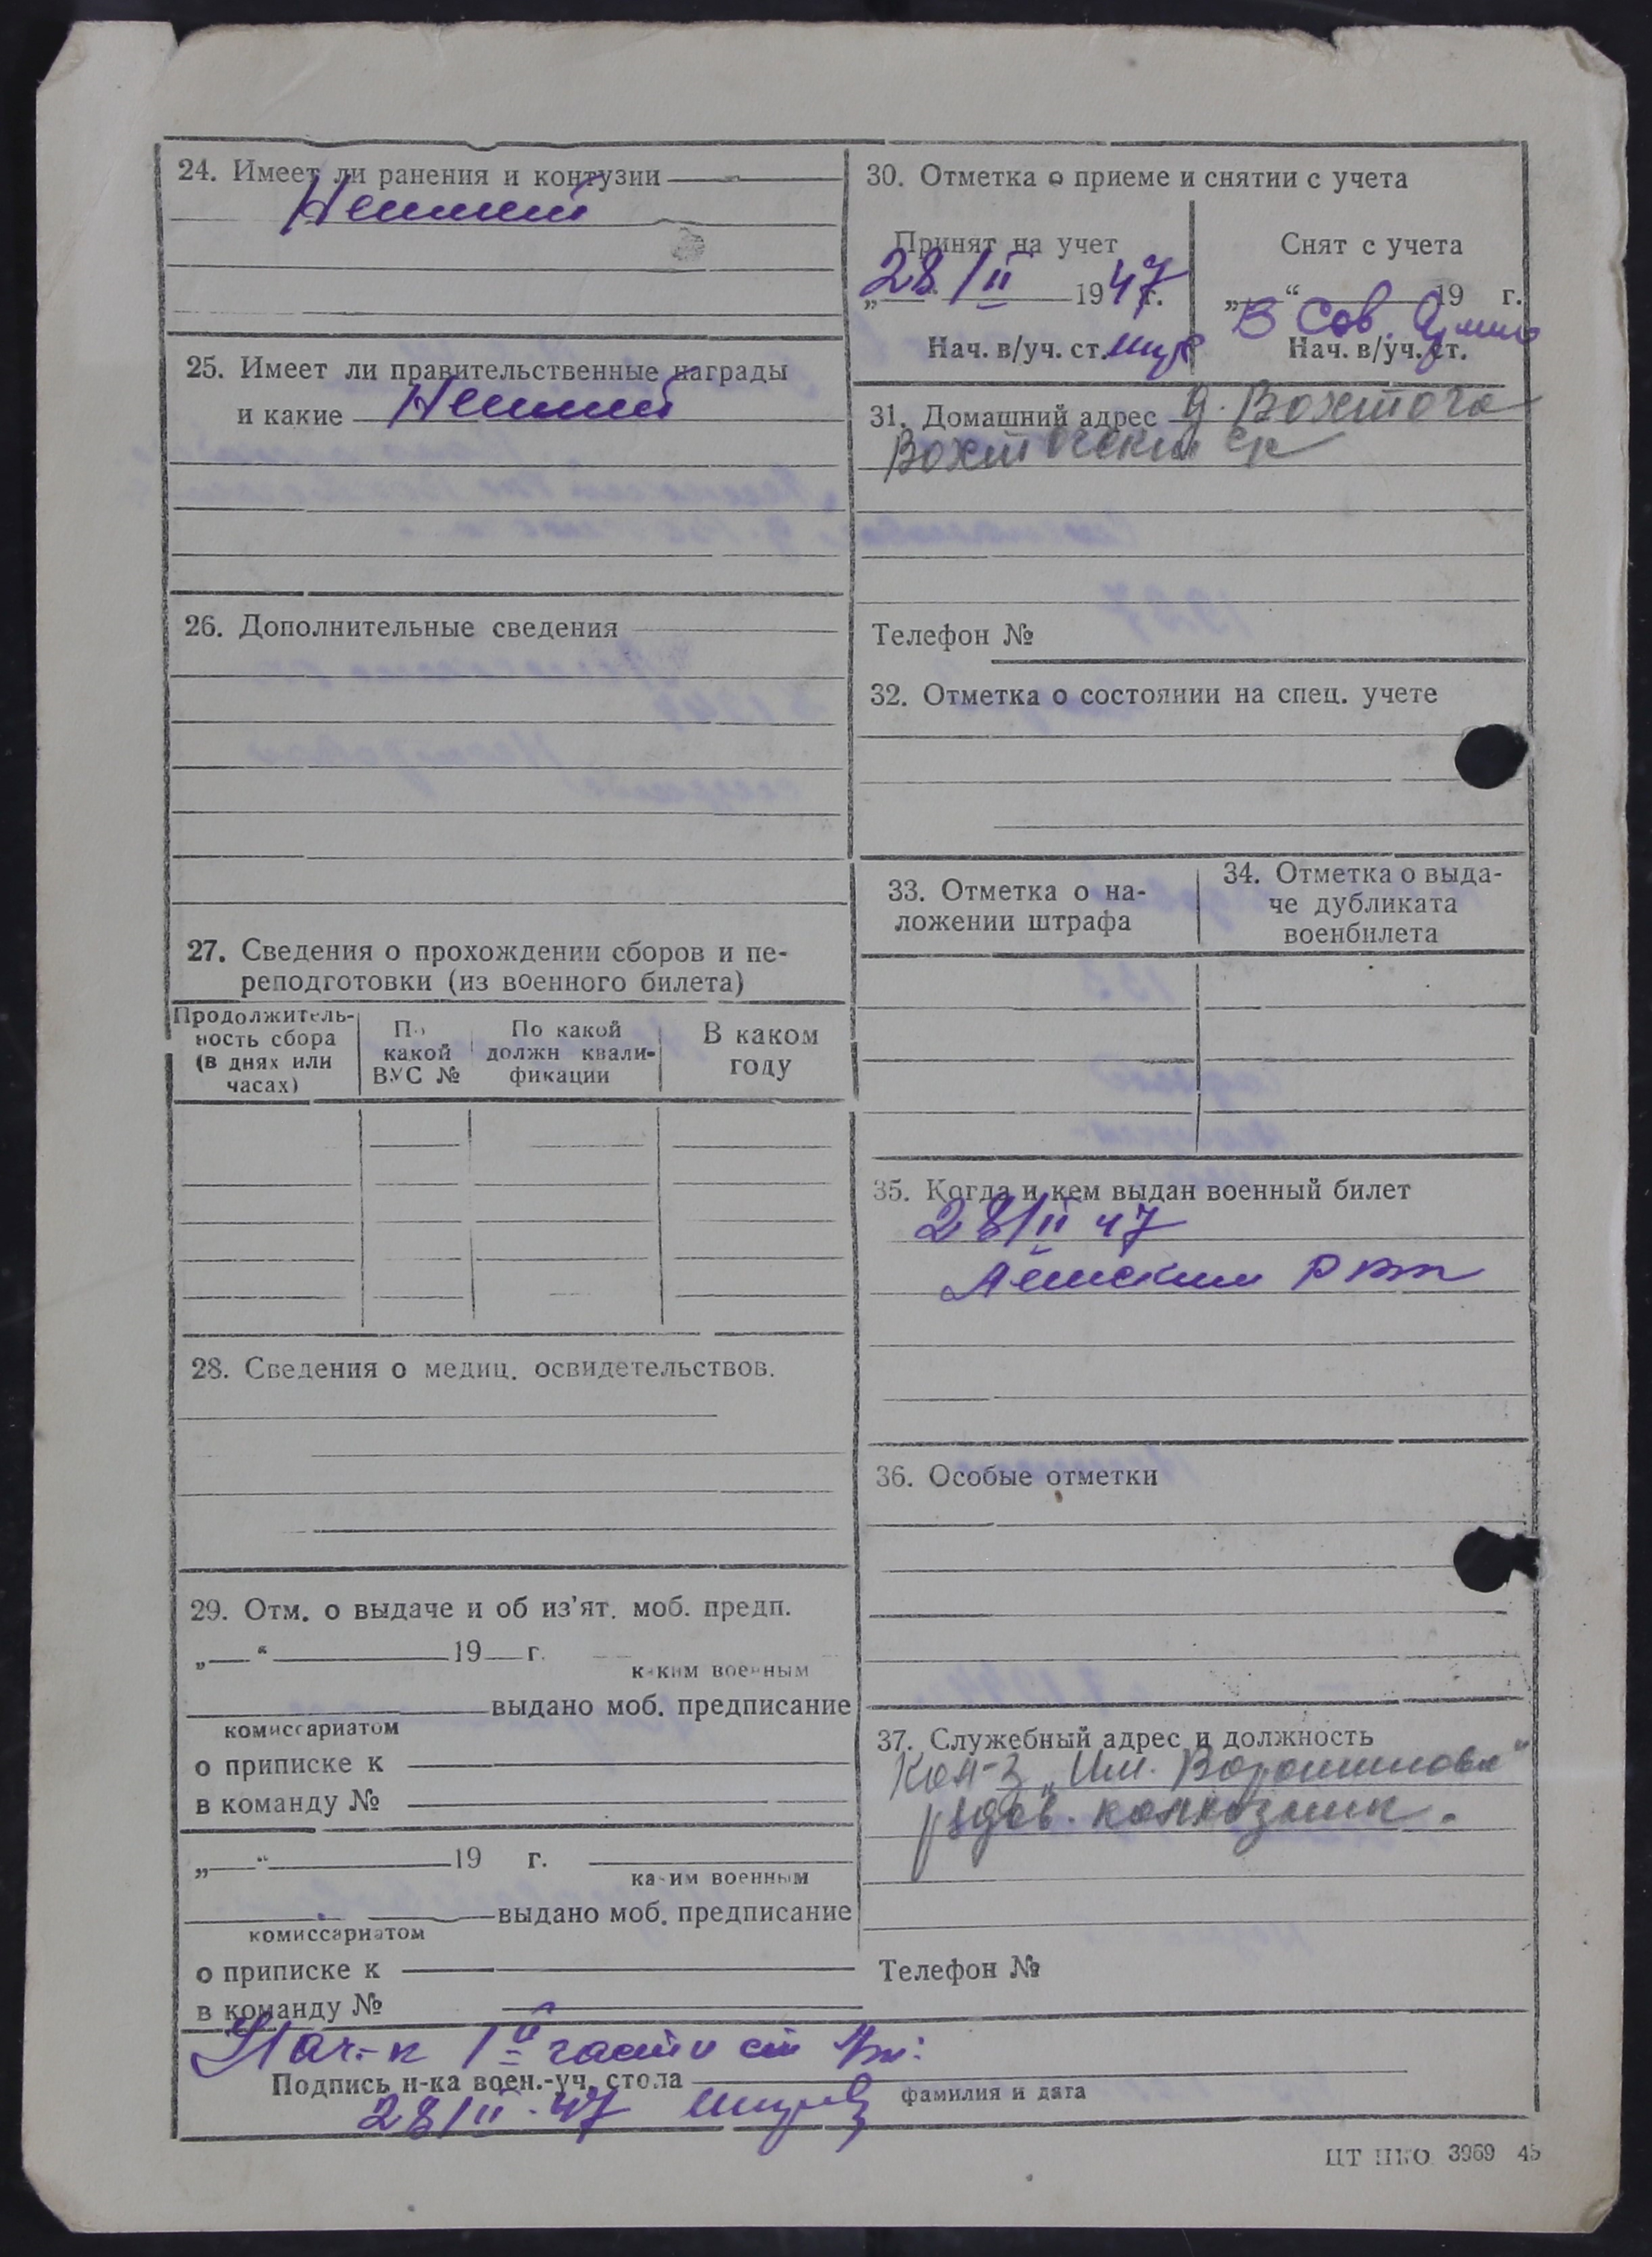 24. Имеет ли ранения и контузии
Неимеет
25. Имеет ли правительственные награды
и какие Неимеет
26. Дополнительные сведения
27. Сведения о прохождении сборов и пе-
реподготовки (из военного билета)
Продолжитель-
ность сбора
(в днях или
часах)
По
какой
ВУС №
По какой
должн квали-
фикации
В каком
году
28. Сведения о медиц. освидетельствов.
29. Отм. о выдаче и об из'ят. моб. предп.
„ “ 19 г.
каким военным
выдано моб. предписание
комиссариатом
о приписке к
в команду №
„ “ 19 г.
каким военным
выдано моб. предписание
комиссариатом
о приписке к
в команду №
30. Отметка о приеме и снятии с учета
Принят на учет
„28/II 1947 г.
Нач. в/уч. ст.
Снят с учета
„ “ 19 г.
В Сов. Армию
Нач. в/уч. ст.
31. Домашний адрес д. Вохтога
Вохтогский с/с
Телефон №
32. Отметка о состоянии на спец. учете
33. Отметка о на-
ложении штрафа
34. Отметка о выда-
че дубликата
военбилета
35. Когда и кем выдан военный билет
28/II 47
36. Особые отметки
37. Служебный адрес и должность
Кол-з „Им. Ворошилова“
рядов. колхозник.
Телефон №
Нач-к 1й части ст
Подпись н-ка воен.-уч. стола
фамилия и дата
28/II-47
ЦТ НКО 3969 45